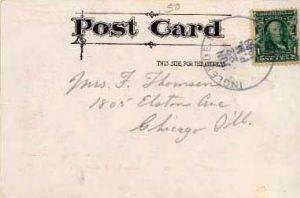 50
Post Card
THIS SIDE FOR THE ADDRESS
Mrs. F. Thomsen
1805 Elston Ave
Chicago Ill.